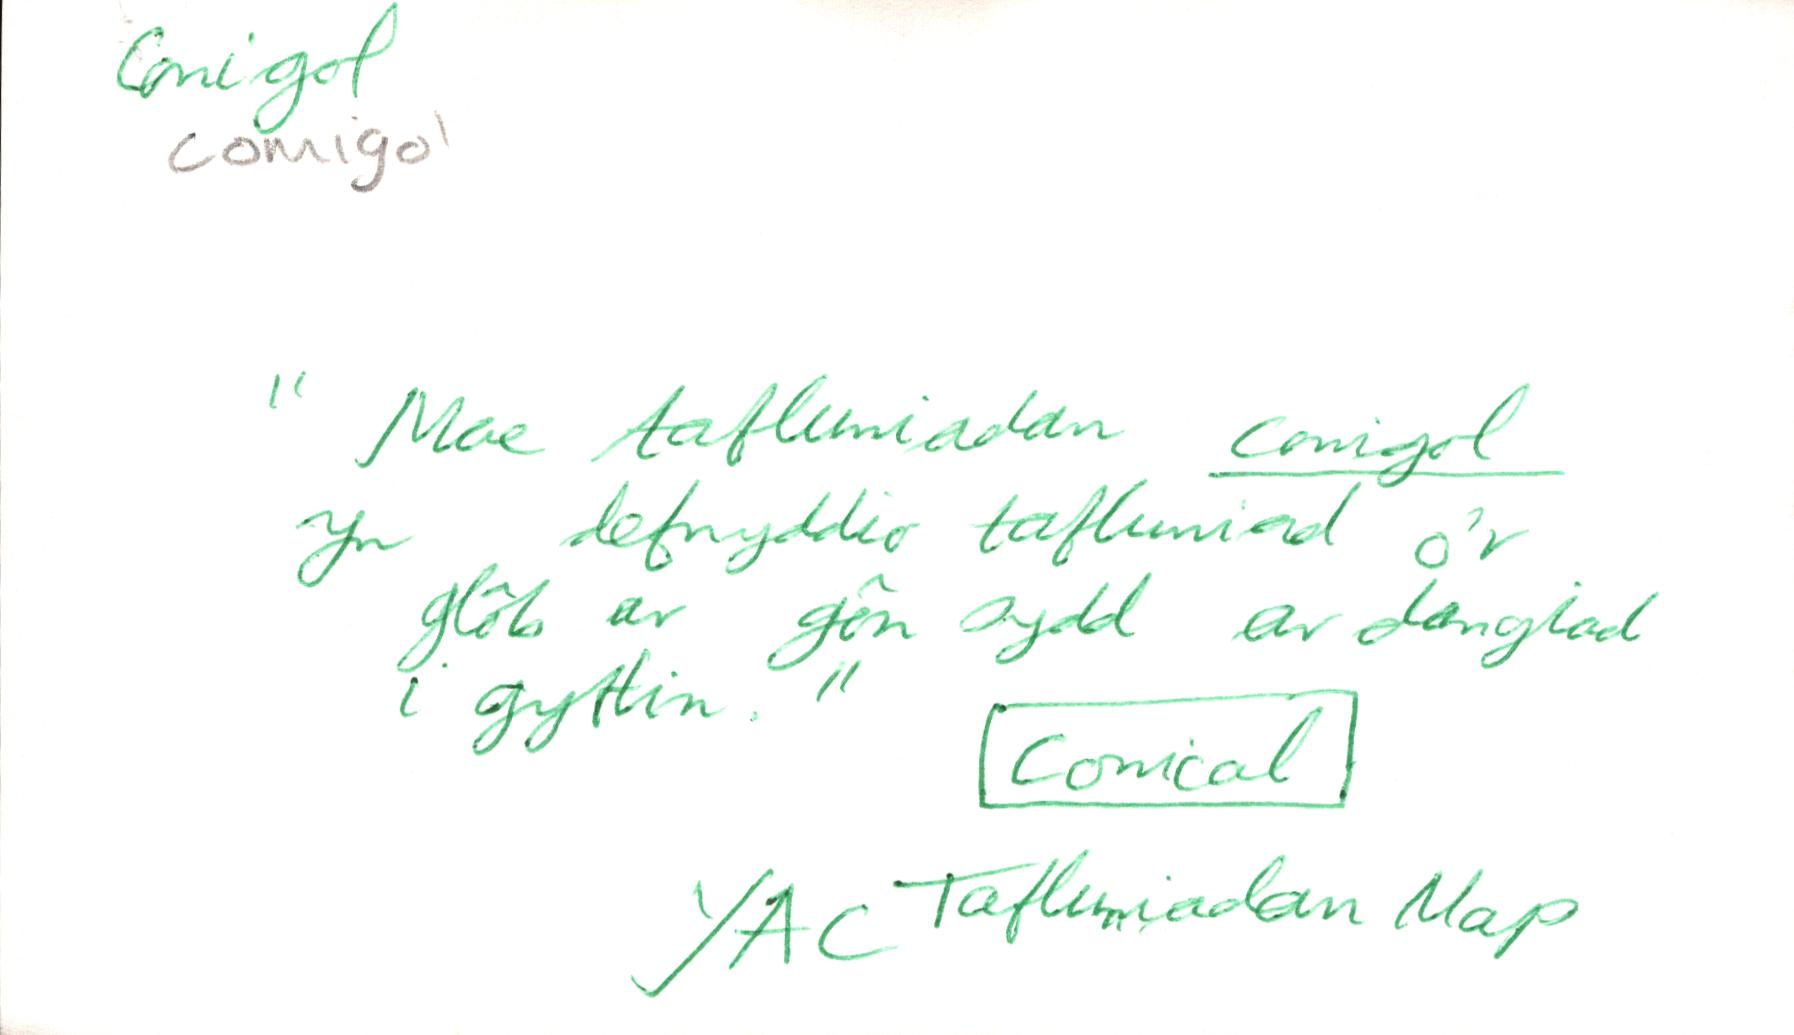 Conigol
conigol
" Mae tafluniadau conigol
yn defnyddio tafluniad o'r
glôb ar gôn sydd ar dangiad
i gyffin. "
Conical
YAC Tafluniadau Map